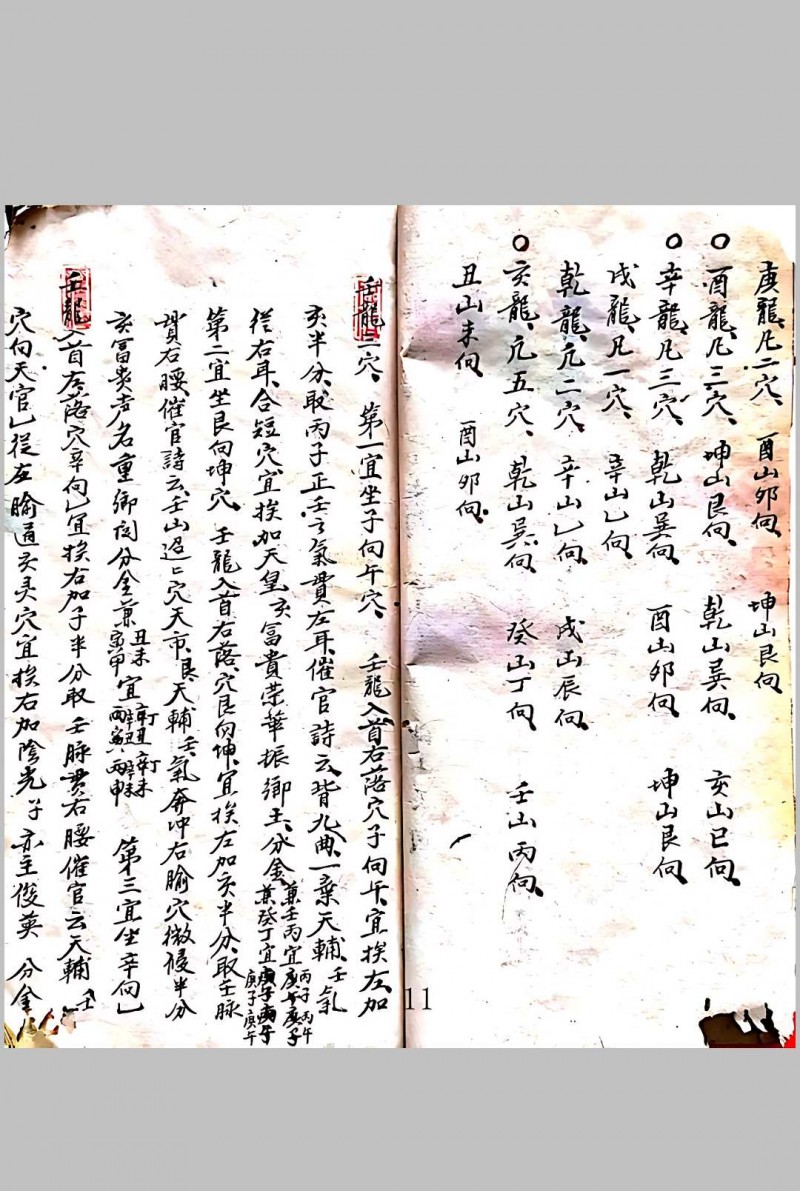 庚龍、凡二穴、 酉山卯向、 坤山艮向、
酉龍、凡三穴、 坤山艮向、 乾山巽向、 亥山巳向、
辛龍、凡三穴、 乾山巽向、 酉山卯向、 坤山艮向、
戌龍、凡一穴、 辛山乙向、
乾龍、凡二穴、 辛山乙向、 戌山辰向、
亥龍、凡五穴、 乾山巽向、 癸山丁向、 壬山丙向、
丑山未向、 酉山卯向、
11
壬龍三穴、 第一宜坐子向午穴、 壬龍入首右落穴子向午、宜挨左加
亥半分、取丙子正壬之氣貫左耳、催官詩云、皆九曲、一棄天輔壬氣
從右耳、合短穴、宜挨加天皇亥富貴荣華振鄉土、分金兼壬丙宜丙子丙午庚午庚子
兼癸丁宜庚子庚午
第一宜坐艮向坤穴、壬龍入首右落、穴艮向坤、宜挨左加亥半分、取壬脉
貫右腰、催官詩云、壬山迢々穴天市艮天輔壬氣奔冲右腧穴微侵半分
亥富贵声名重鄉闾分金兼丑未寅甲宜辛丑辛未丙寅丙申 第三宜坐辛向乙
壬龍入首右落穴辛向乙宜挨右加子半分取壬脉贯右腰催官云天輔壬
穴向天官乙從左腧通亥灵穴宜挨右加陰光子亦主俊英 分金